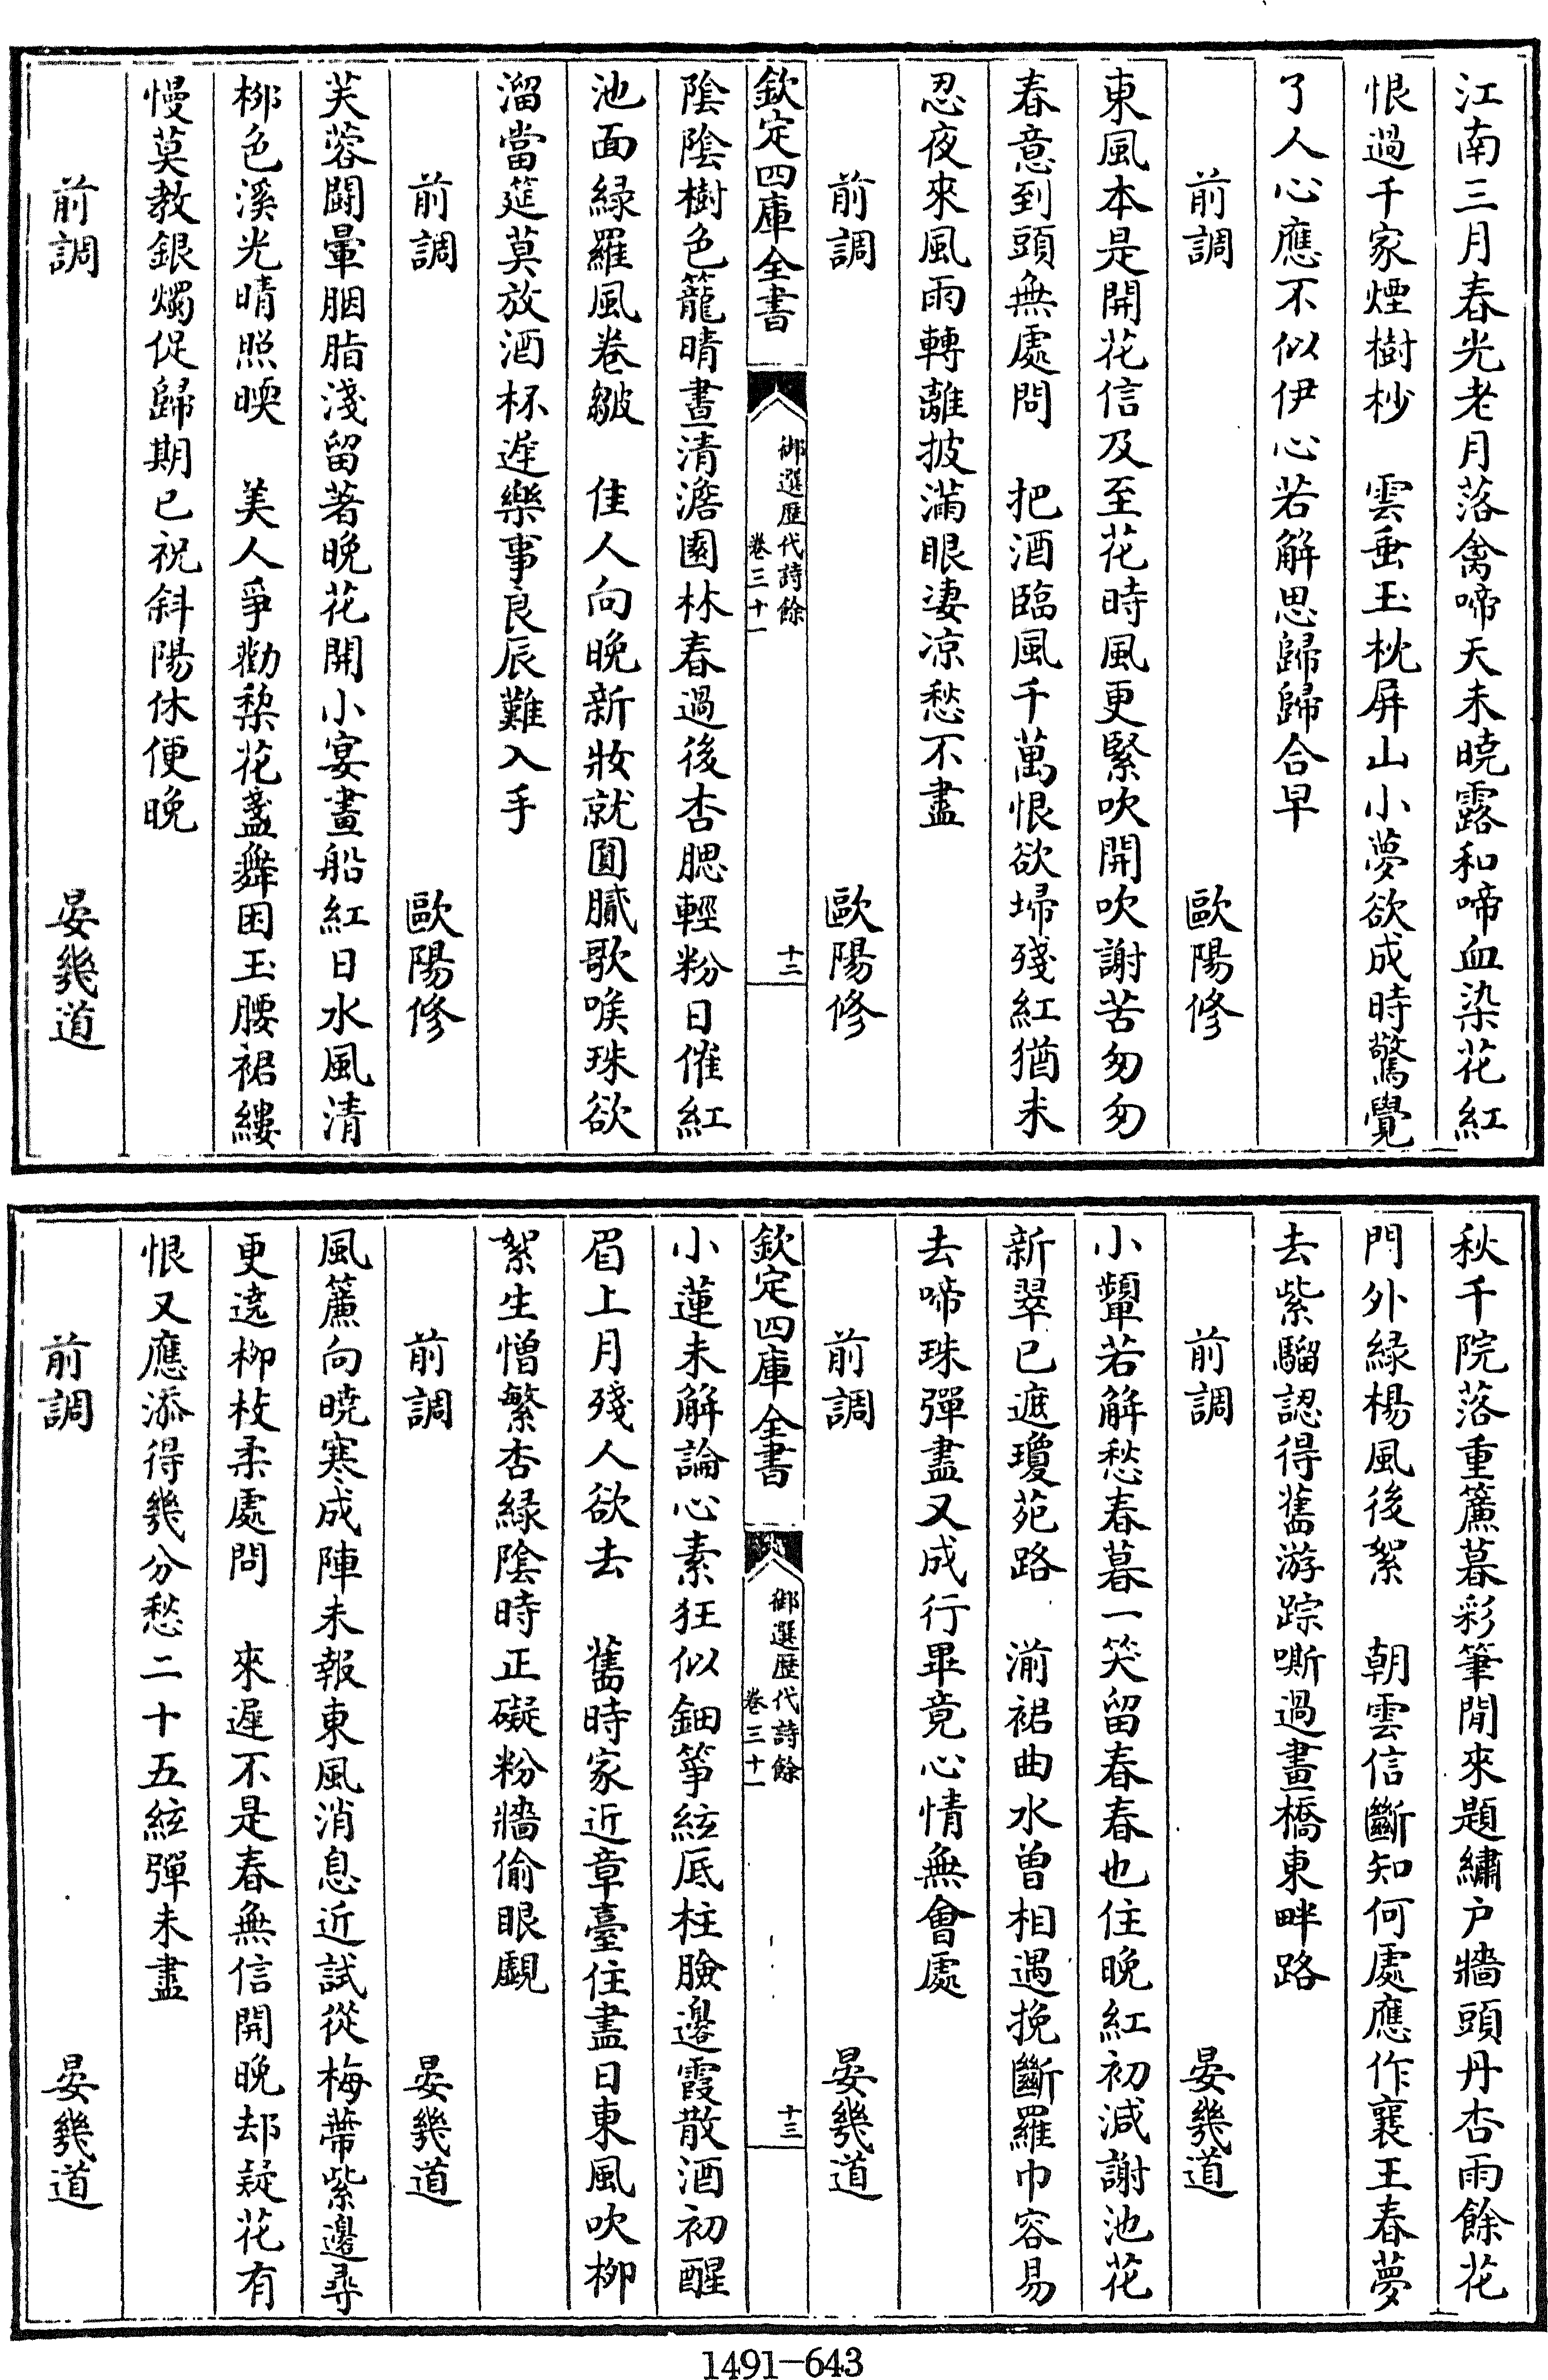 江南三月春光老月落禽啼天未曉露和啼血染花紅
恨過千家煙樹杪　雲垂玉枕屏山小夢欲成時驚覺
了人心應不似伊心若解思歸歸合早
前調　歐陽修
東風本是開花信及至花時風更緊吹開吹謝苦匆匆
春意到頭無處問　把酒臨風千萬恨欲埽殘紅猶未
忍夜來風雨轉離披滿眼凄涼愁不盡
前調　歐陽修
欽定四庫全書　御選歷代詩餘　卷三十一　十二
陰陰樹色籠晴晝清澹園林春過後杏腮輕粉日催紅
池面緑羅風卷皺　佳人向晚新妝就圓膩歌喉珠欲
溜當筵莫放酒杯遲樂事良辰難入手
前調　歐陽修
芙蓉鬬暈胭脂淺留著晚花開小宴畫船紅日水風清
柳色溪光晴照暎　美人爭勸梨花盞舞困玉腰裙縷
慢莫教銀燭促歸期已祝斜陽休便晚
前調　晏幾道
秋千院落重簾暮彩筆閒來題繡户牆頭丹杏雨餘花
門外緑楊風後絮　朝雲信斷知何處應作襄王春夢
去紫騮認得舊游踪嘶過畫橋東畔路
前調　晏幾道
小顰若解愁春暮一笑留春春也住晚紅初減謝池花
新翠已遮瓊苑路　湔裙曲水曾相遇挽斷羅巾容易
去啼珠彈盡又成行畢竟心情無會處
前調　晏幾道
欽定四庫全書　御選歷代詩餘　卷三十一　十三
小蓮未解論心素狂似鈿箏絃底柱臉邊霞散酒初醒
眉上月殘人欲去　舊時家近章臺住盡日東風吹柳
絮生憎繁杏緑陰時正礙粉牆偷眼覷
前調　晏幾道
風簾向曉寒成陣未報東風消息近試從梅蔕紫邊尋
更遶柳枝柔處問　來遲不是春無信開晚却疑花有
恨又應添得幾分愁二十五絃彈未盡
前調　晏幾道
1491-643